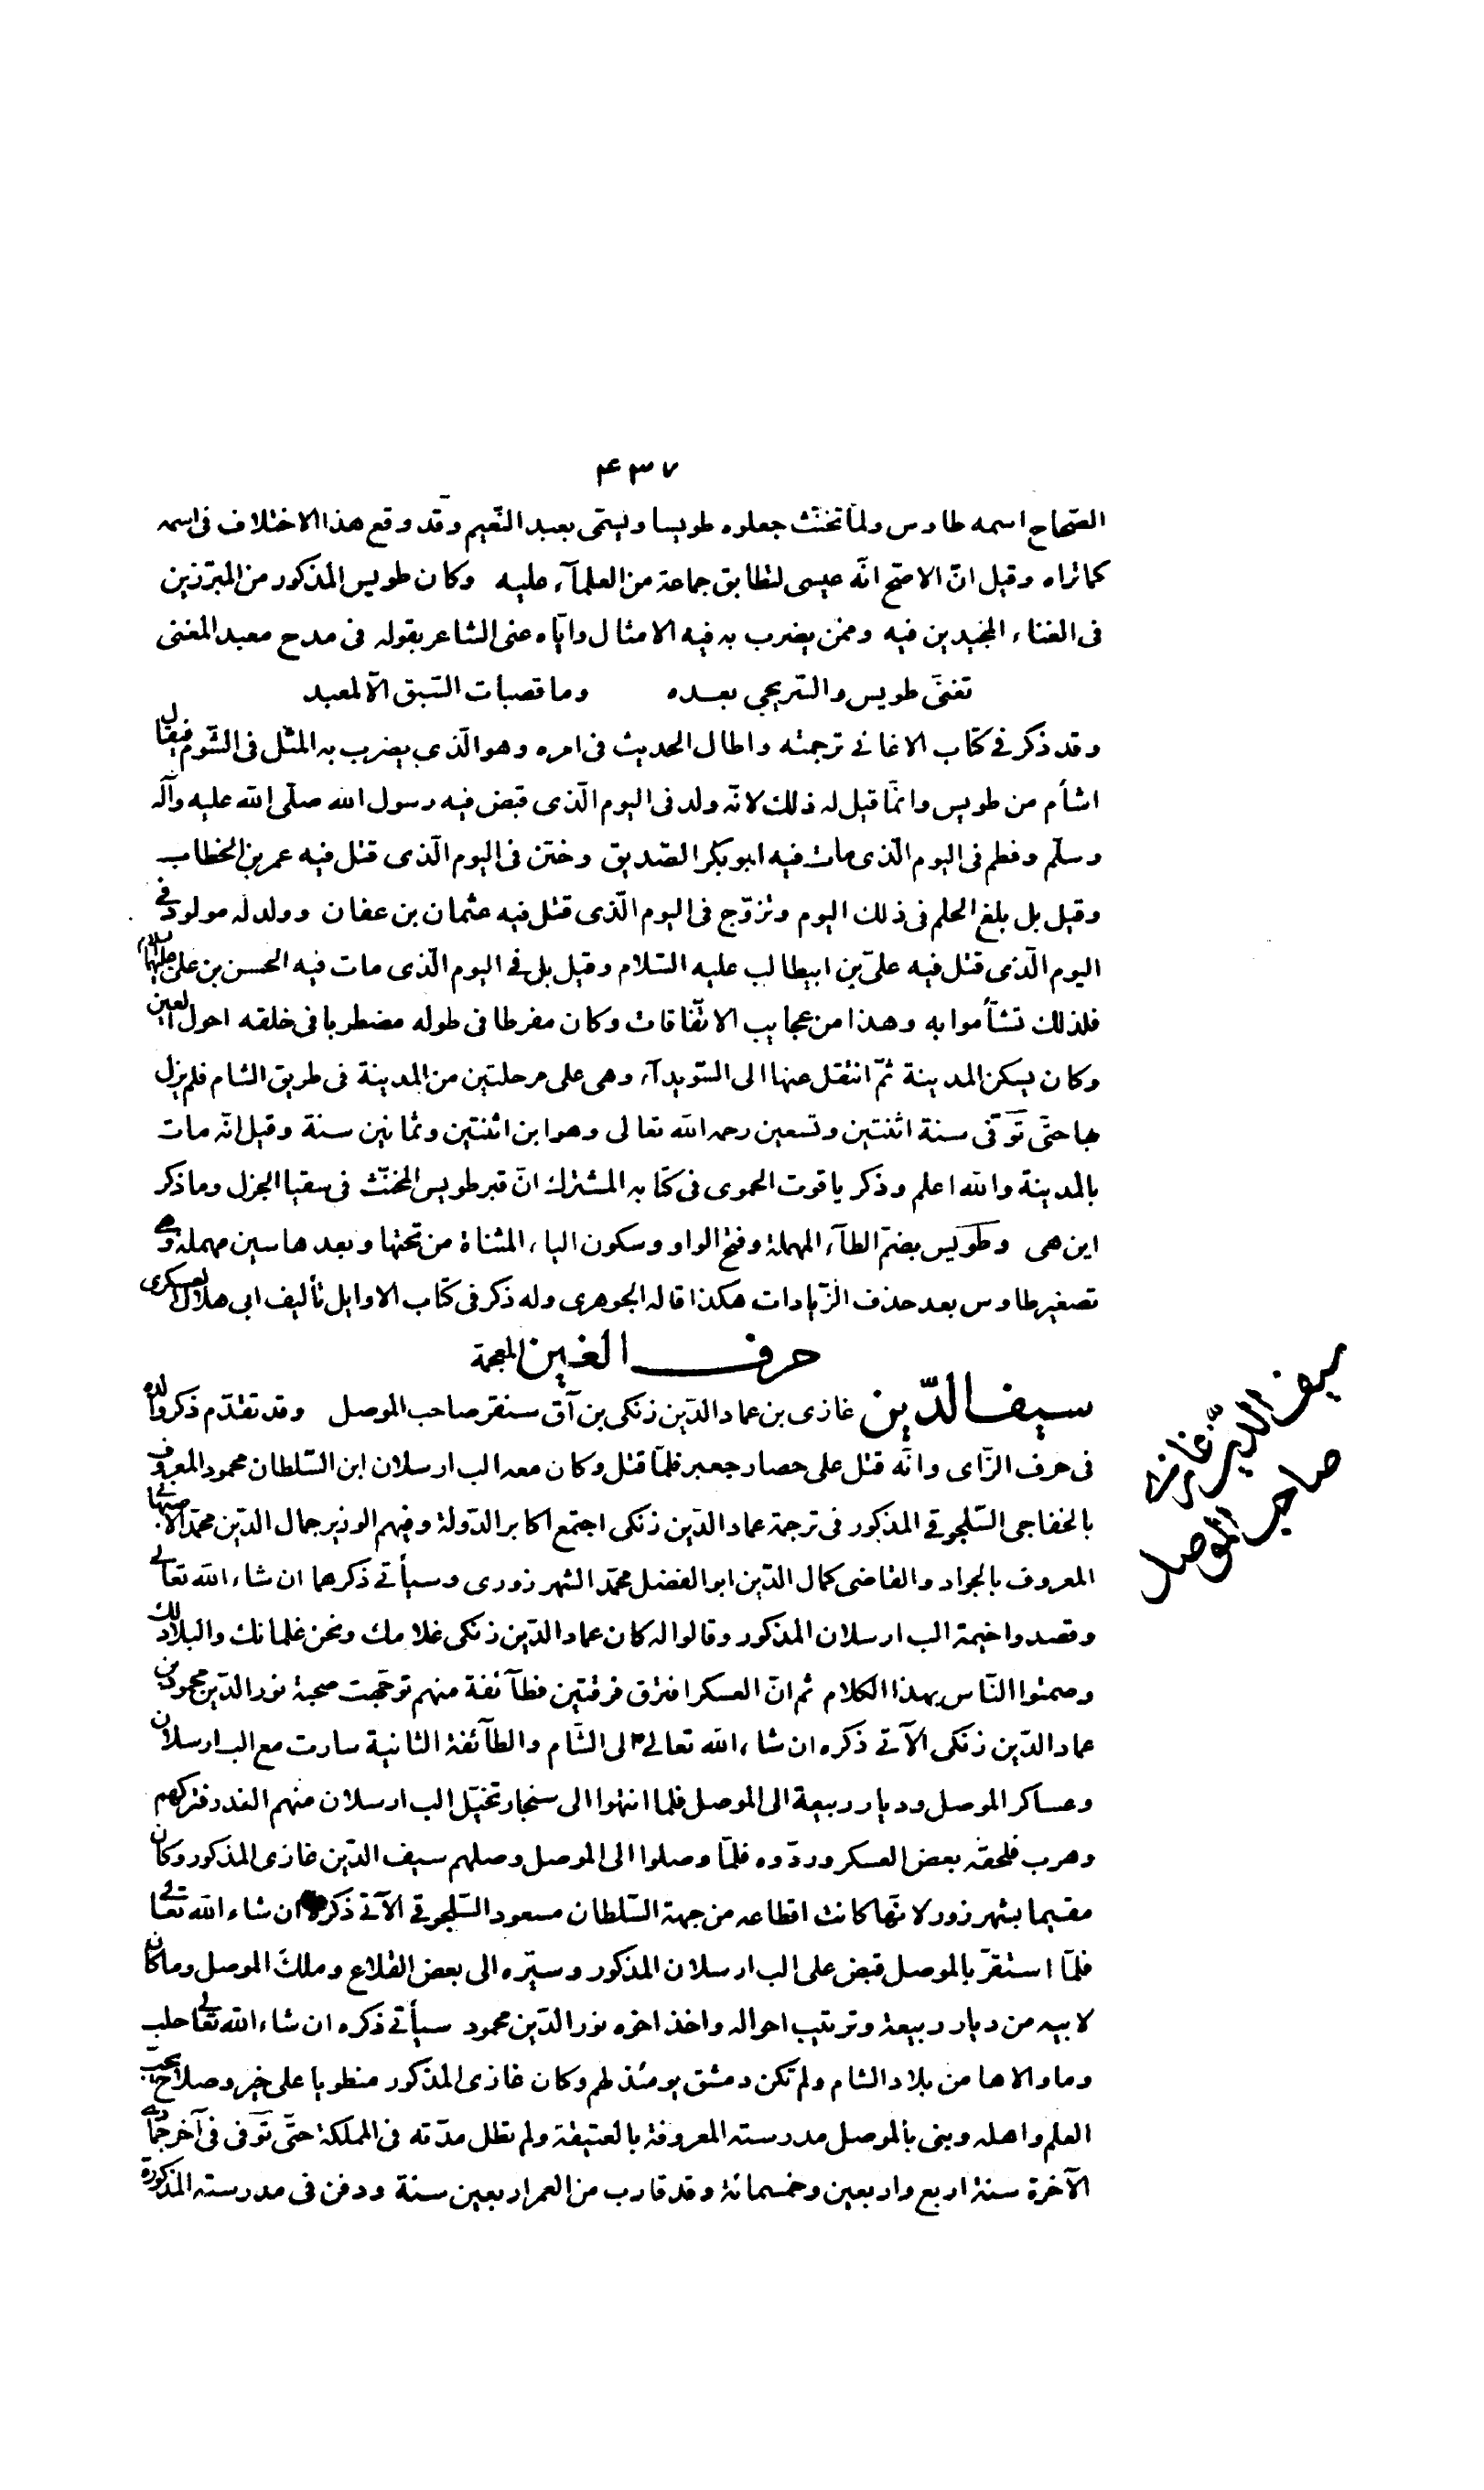 ۴۳۷
الصّحاح اسمه طاوس ولمّا تخنّث جعلوه طويسا ويسمّى بعبد النّعيم وقد وقع هذا الاختلاف فى اسمه
كما تراه وقيل انّ الاصحّ انّه عيسى لتطابق جماعة من العلمآء عليه وكان طويس المذكور من المبرّزين
فى الغناء المجيدين فيه وممّن يضرب به فيه الامثال وايّاه عنى الشاعر بقوله فى مدح معبد المغنى
تغنّى طويس والسّريجى بعده وما قصبات السّبق الّا لمعبد
وقد ذكر فى كتاب الاغانى ترجمته واطال الحديث فى امره وهو الّذى يضرب به المثل فى الشّوم فيقال
اشأم من طويس وانّما قيل له ذلك لانّه ولد فى اليوم الّذى قبض فيه رسول الله صلّى الله عليه وآله
وسلّم وفطم فى اليوم الّذى مات فيه ابو بكر الصّديق وختن فى اليوم الّذى قتل فيه عمر بن الخطاب
وقيل بل بلغ الحلم فى ذلك اليوم وتزوّج فى اليوم الّذى قتل فيه عثمان بن عفان وولد له مولود فى
اليوم الّذى قتل فيه علىّ بن ابيطالب عليه السّلام وقيل بل فى اليوم الّذى مات فيه الحسن بن على عليهما السلام
فلذلك تشأموا به وهذا من عجايب الاتّفاقات وكان مفرطا فى طوله مضطربا فى خلقه احول العين
وكان يسكن المدينة ثمّ انتقل عنها الى السّويدآء وهى على مرحلتين من المدينة فى طريق الشام فلم يزل
بها حتّى توّفى سنة اثنتين وتسعين رحمه الله تعالى وهو ابن اثنتين وثمانين سنة وقيل انّه مات
بالمدينة والله اعلم وذكر ياقوت الحموى فى كتابه المشترك انّ قبر طويس المخنّث فى سقيا الجزل وما ذكر
اين هى وطويس بضمّ الطآء المهملة وفتح الواو وسكون الياء المثناة من تحتها وبعدها سين مهملة وهى
تصغير طاوس بعد حذف الزّيادات هكذا قاله الجوهرى وله ذكر فى كتاب الاوايل تأليف ابى هلال العسكرى
حرف الغين المعجمة
سيف الدّين غازى بن عماد الدّين زنكى بن آق سنقر صاحب الموصل وقد تقدّم ذكر والده
فى حرف الزّاى وانّه قتل على حصار جعبر فلمّا قتل وكان معه الب ارسلان ابن السّلطان محمود المعروف
بالخفاجى السّلجوقى المذكور فى ترجمة عماد الدّين زنكى اجتمع اكابر الدّولة وفيهم الوزير جمال الدّين محمّد الاصبهانى
المعروف بالجواد والقاضى كمال الدّين ابو الفضل محمّد الشهرزورى وسيأتى ذكرهما ان شاء الله تعالى
وقصدوا خيمة الب ارسلان المذكور وقالوا له كان عماد الدّين زنكى غلامك ونحن غلمانك والبلاد لك
وصمتوا النّاس بهذا الكلام ثم انّ العسكر افترق فرقتين فطآئفة منهم توجّهت صحبة نور الدّين محمود بن
عماد الدّين زنكى الآتى ذكره ان شاء الله تعالى الى الشّام والطآئفة الثانية سارت مع الب ارسلان
وعساكر الموصل وديار ربيعة الى الموصل فلما انتهوا الى سنجار تخيّل الب ارسلان منهم الغدر فتركهم
وهرب فلحقه بعض العسكر وردّوه فلمّا وصلوا الى الموصل وصلهم سيف الدّين غازى المذكور وكان
مقيما بشهرزور لانّها كانت اقطاعه من جهة السّلطان مسعود السّلجوقى الآتى ذكره ان شاء الله تعالى
فلمّا استقرّ بالموصل قبض على الب ارسلان المذكور وسيّره الى بعض القلاع وملك الموصل وما كان
لابيه من ديار ربيعة وترتيب احواله واخذ اخوه نور الدّين محمود سيأتى ذكره ان شاء الله تعالى حلب
وما والاها من بلاد الشام ولم تكن دمشق يومئذ لهم وكان غازى المذكور منطويا على خير وصلاح يحبّ
العلم واهله وبنى بالموصل مدرسته المعروفة بالعتيقة ولم تطل مدّته فى المملكة حتّى توّفى فى آخر جمادى
الآخرة سنة اربع واربعين وخمسمائة وقد قارب من العمر اربعين سنة ودفن فى مدرسته المذكورة
سيف الدّين غازى
صاحب الموصل